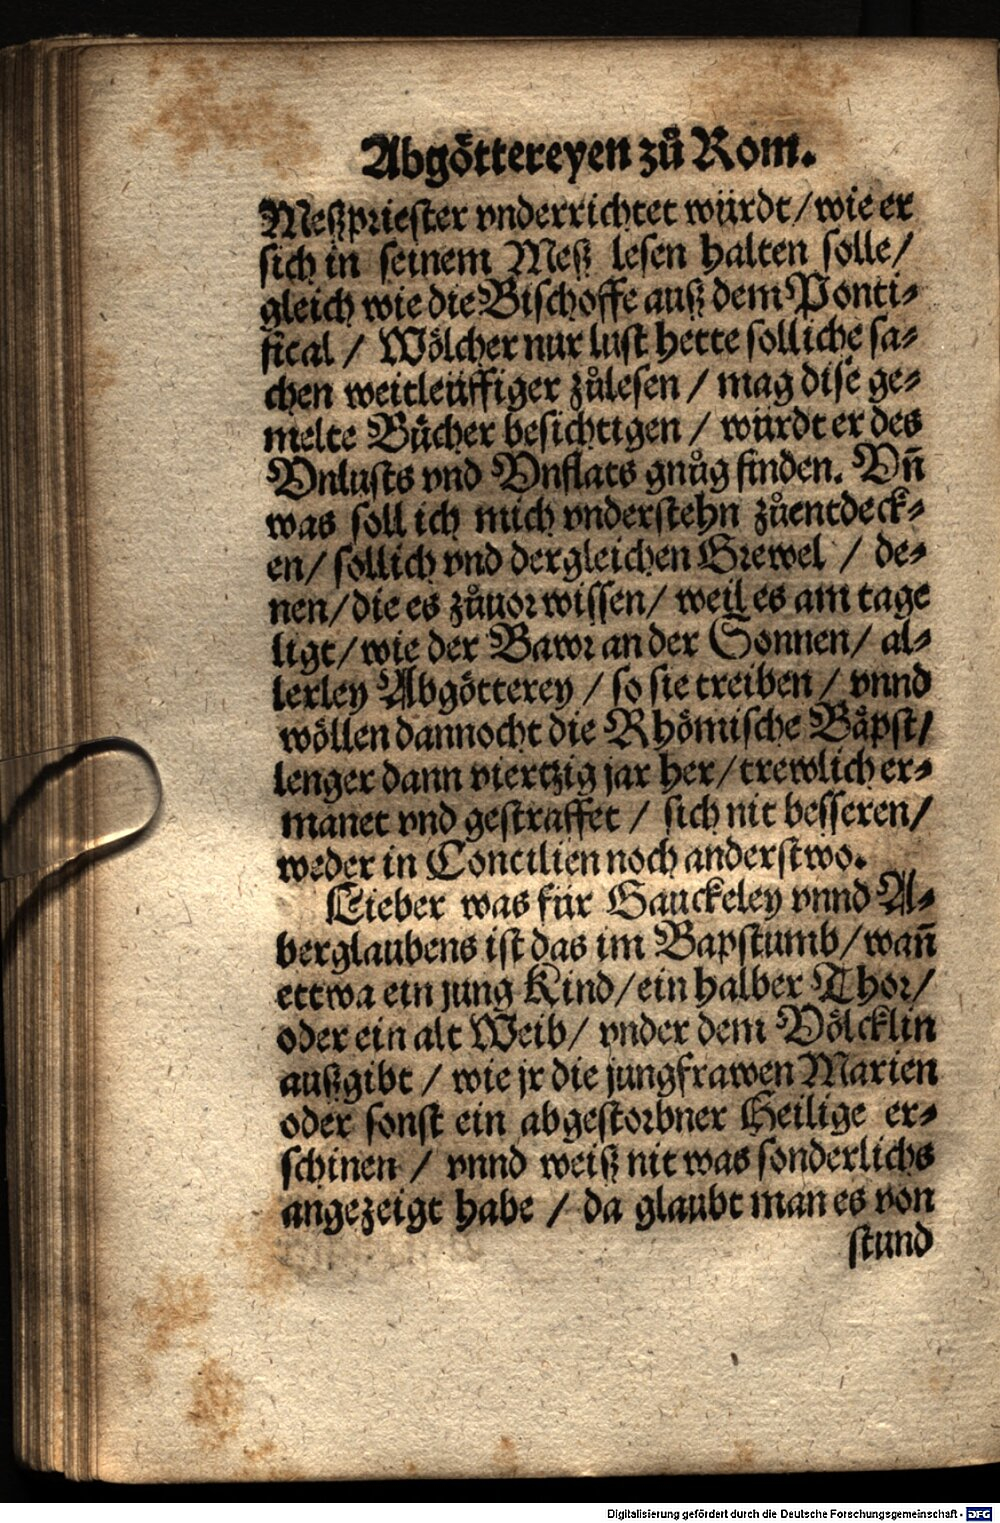 Abgöttereyen zuͦ Rom.
Meßpriester vnderrichtet würdt / wie er
sich in seinem Meß lesen halten solle /
gleich wie die Bischoffe auß dem Ponti⸗
fical / Wölcher nur lust hette solliche sa⸗
chen weitleüffiger zuͦlesen / mag dise ge⸗
melte Buͤcher besichtigen / würdt er des
Vnlusts vnd Vnflats gnuͦg finden. Vñ
was soll ich mich vnderstehn zuͦentdeck⸗
en / sollich vnd dergleichen Grewel / de⸗
nen / die es zuͦuor wissen / weil es am tage
ligt / wie der Bawr an der Sonnen / al⸗
lerley Abgötterey / so sie treiben / vnnd
wöllen dannocht die Rhömische Baͤpst /
lenger dann viertzig jar her / trewlich er⸗
manet vnd gestraffet / sich nit besseren /
weder in Concilien noch anderstwo.
Lieber was für Gauckeley vnnd A⸗
berglaubens ist das im Bapstumb / wañ
ettwa ein jung Kind / ein halber Thor /
oder ein alt Weib / vnder dem Völcklin
außgibt / wie jr die jungfrawen Marien
oder sonst ein abgestorbner Heilige er⸗
schinen / vnnd weiß nit was sonderlichs
angezeigt habe / da glaubt man es von
stund
Digitalisierung gefördert durch die Deutsche Forschungsgemeinschaft - DFG